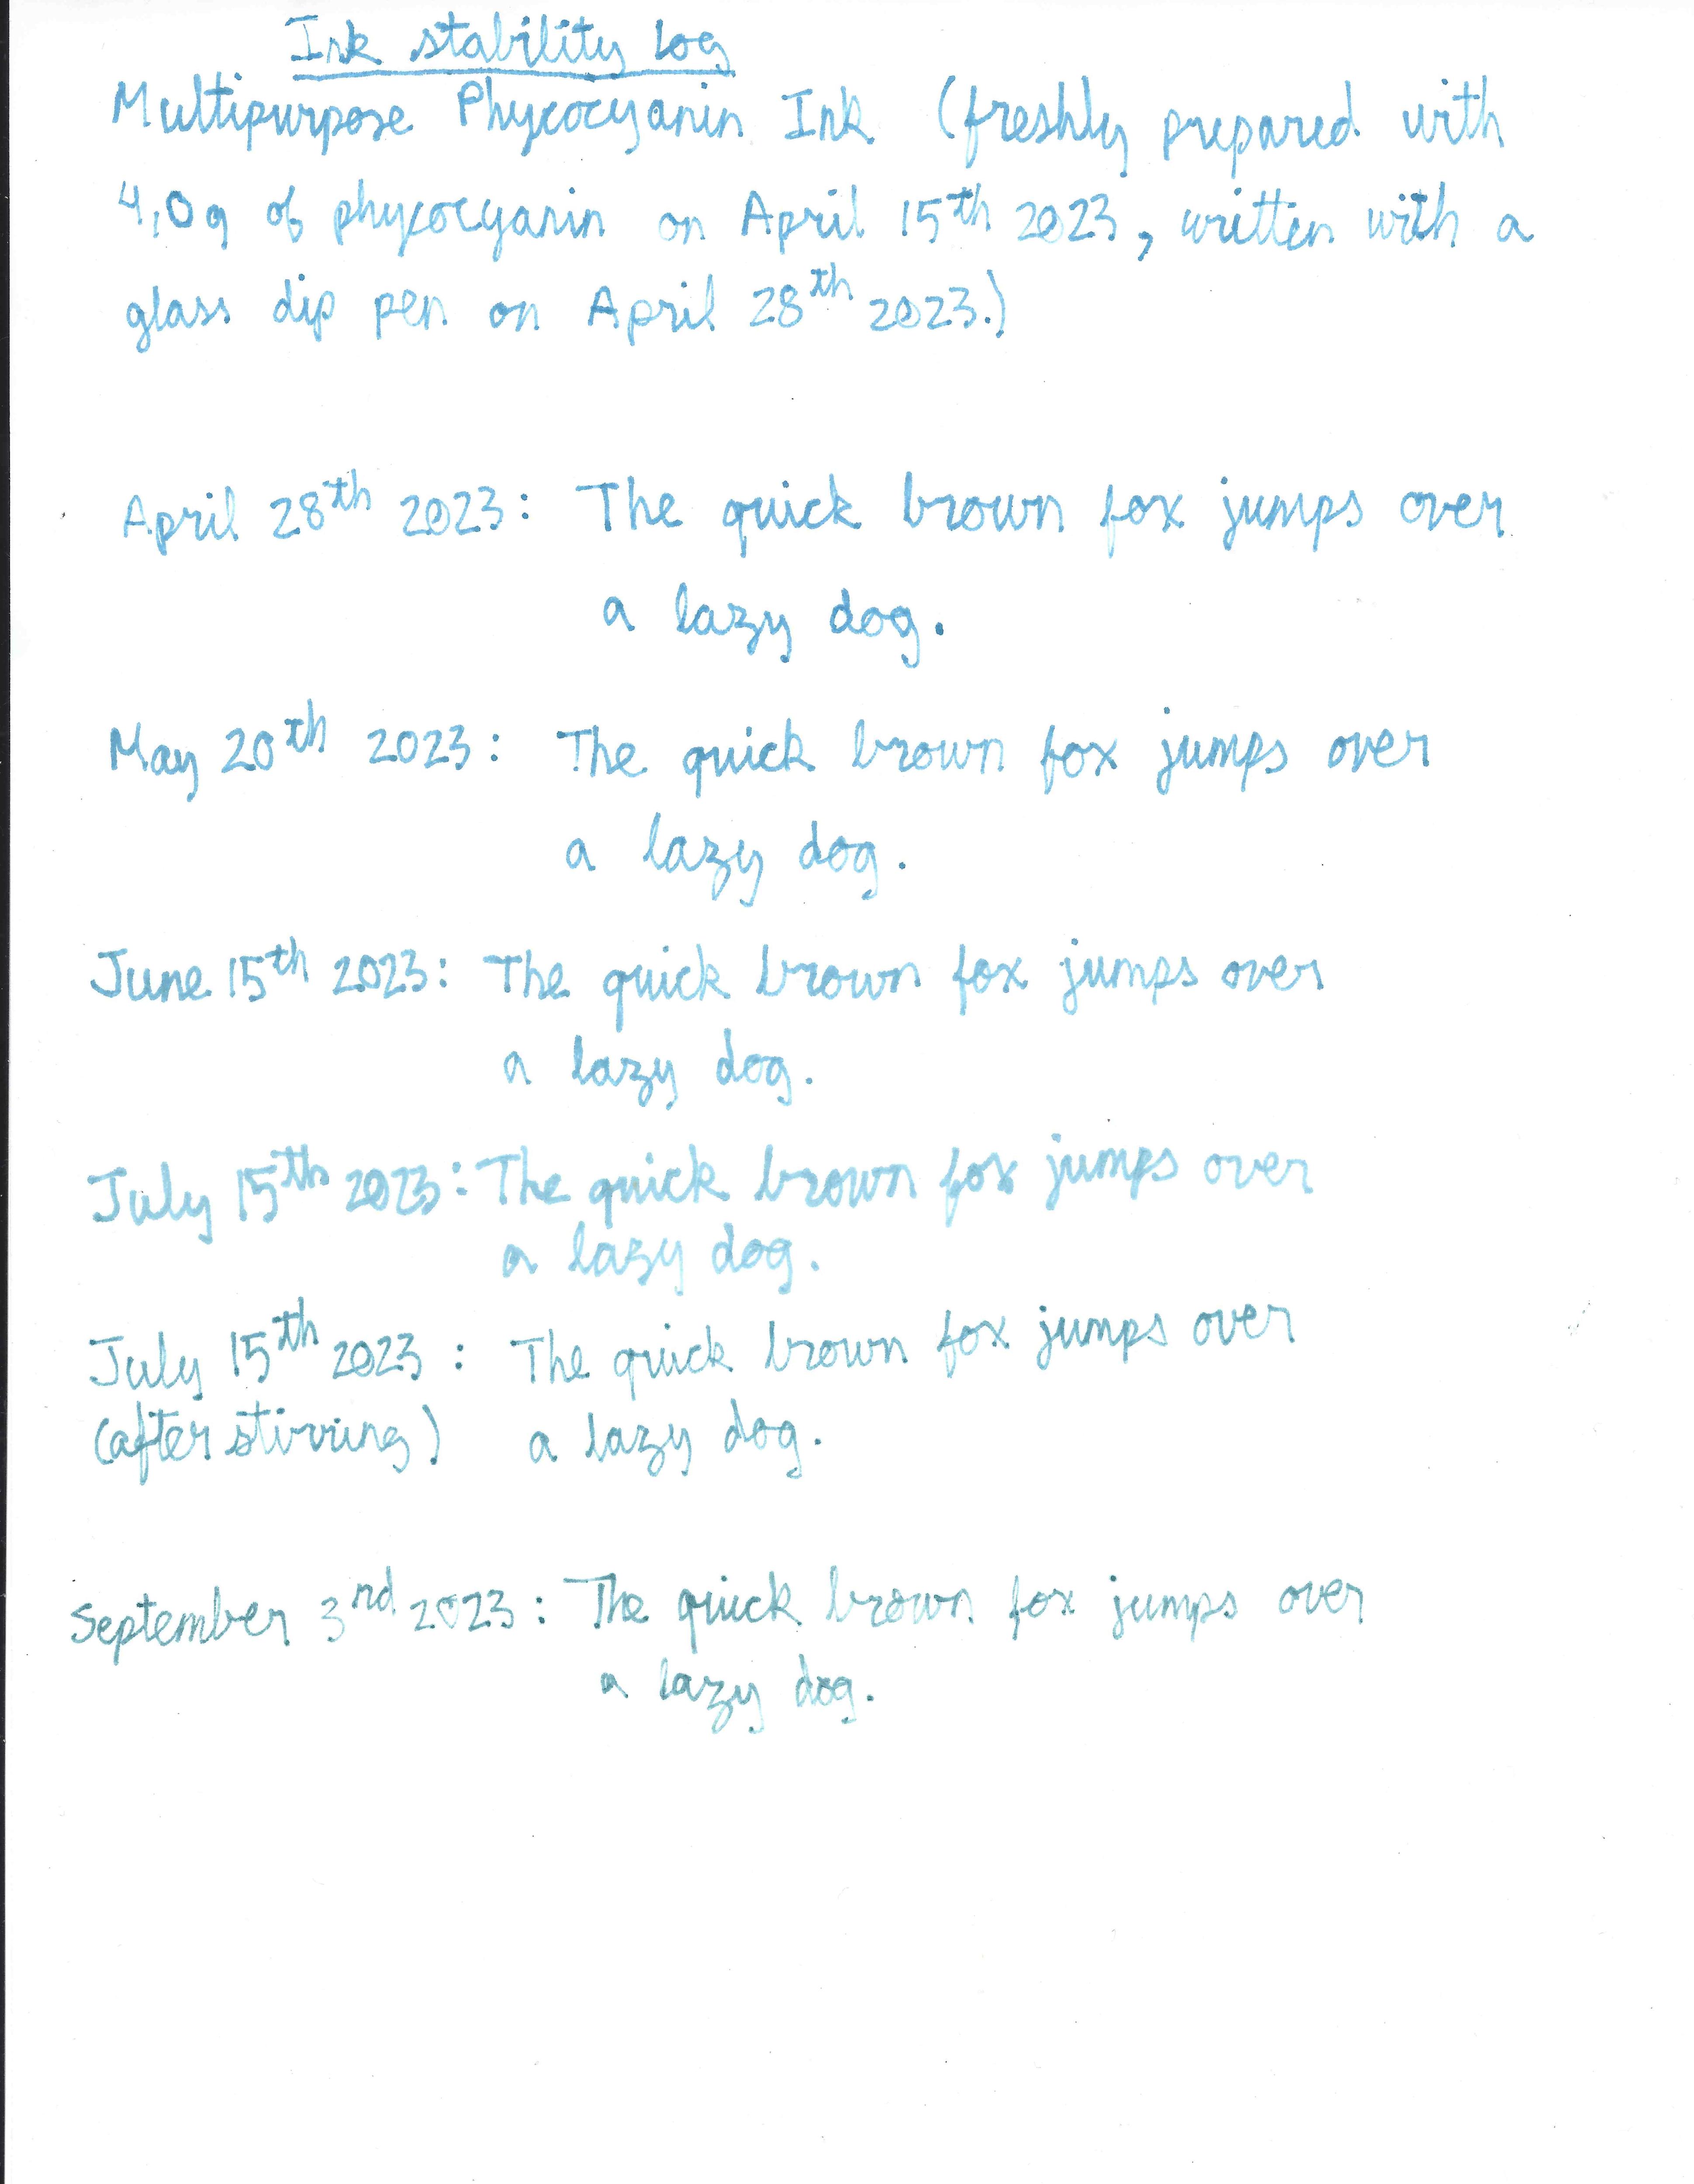 Ink stability log
Multipurpose Phycocyanin Ink (freshly prepared with
4,0g of phycocyanin on April 15th 2023, written with a
glass dip pen on April 28th 2023.)
April 28th 2023: The quick brown fox jumps over
a lazy dog.
May 20th 2023: The quick brown fox jumps over
a lazy dog.
June 15th 2023: The quick brown fox jumps over
a lazy dog.
July 15th 2023: The quick brown fox jumps over
a lazy dog.
July 15th 2023: The quick brown fox jumps over
(after stirring) a lazy dog.
September 3rd 2023: The quick brown fox jumps over
a lazy dog.